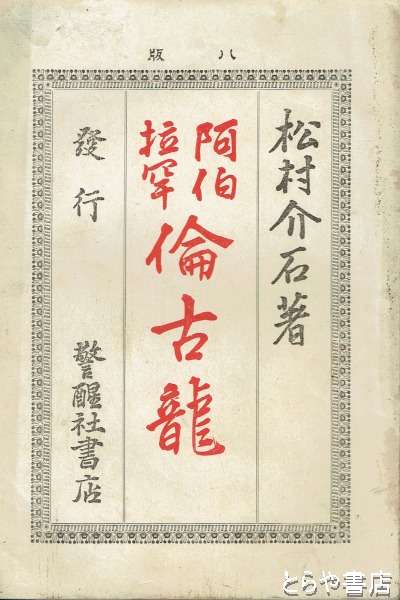 八版
松村介石著
阿伯拉罕
倫古龍
發行
警醒社書店
とらや書店